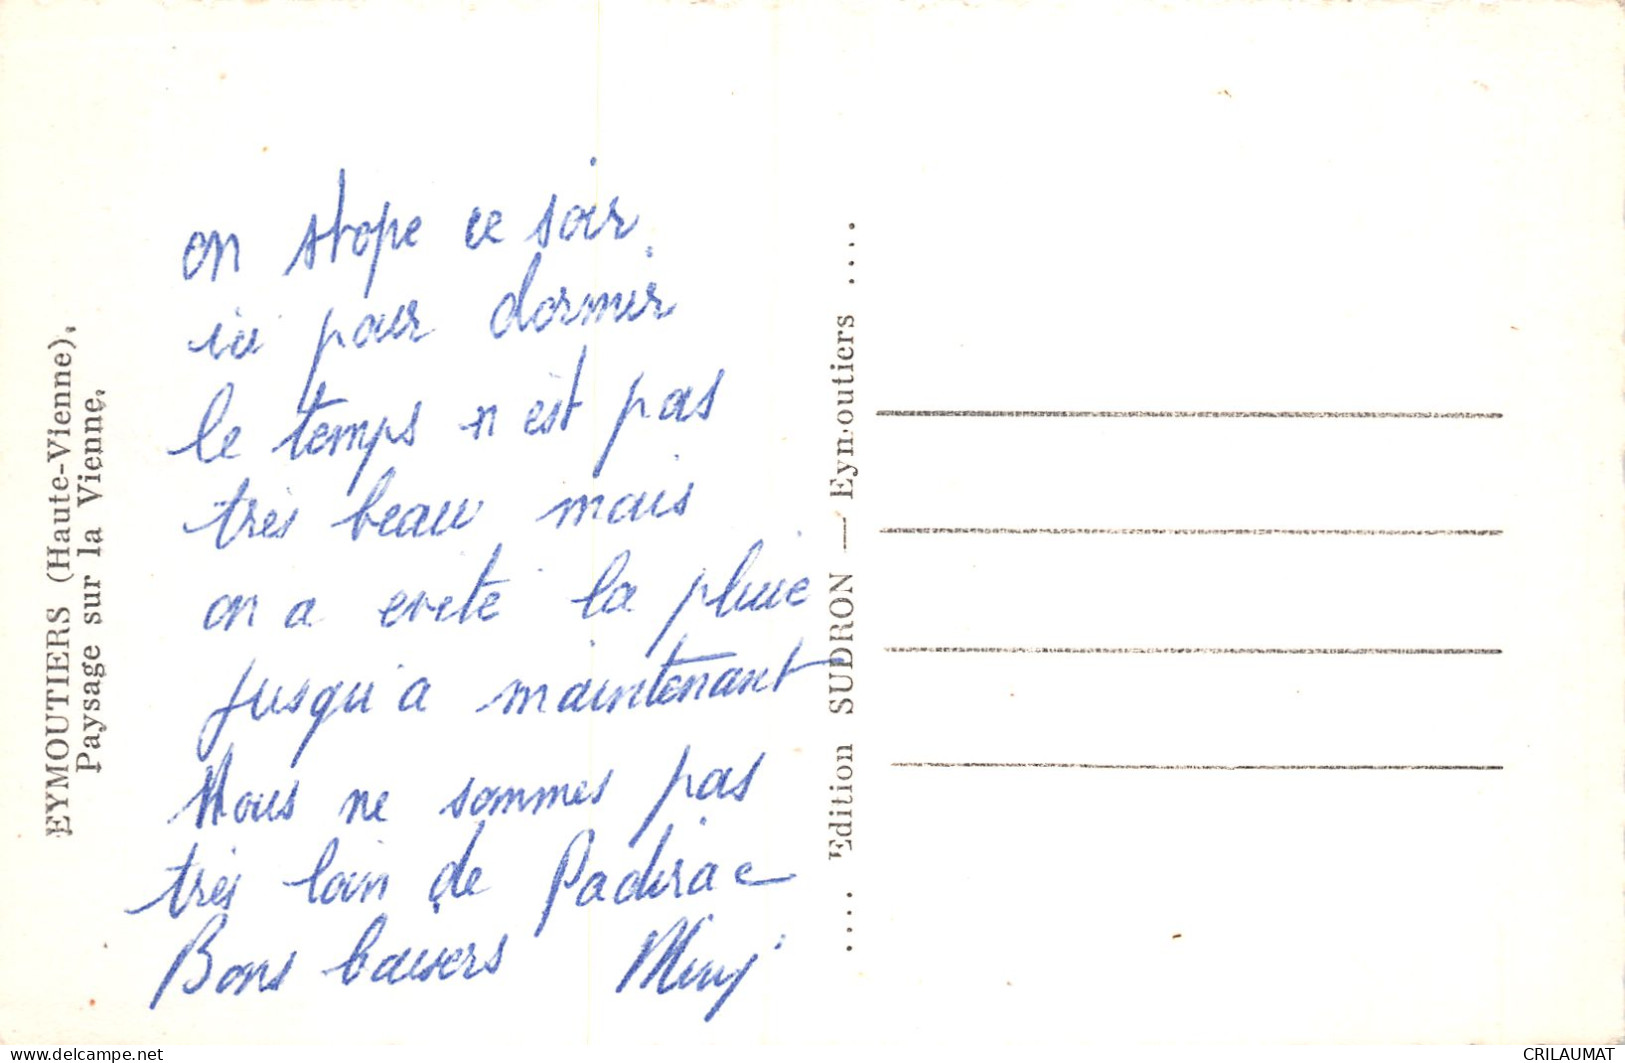 EYMOUTIERS (Haute-Vienne).
Paysage sur la Vienne.
on stope ce soir
ici pour dormir
le temps n est pas
très beau mais
on a evité la pluie
jusqu'a maintenant
Nous ne sommes pas
très loin de Padirac
Bons baisers
.... Edition SUDRON — Eymoutiers ....
delcampe.net
CRILAUMAT